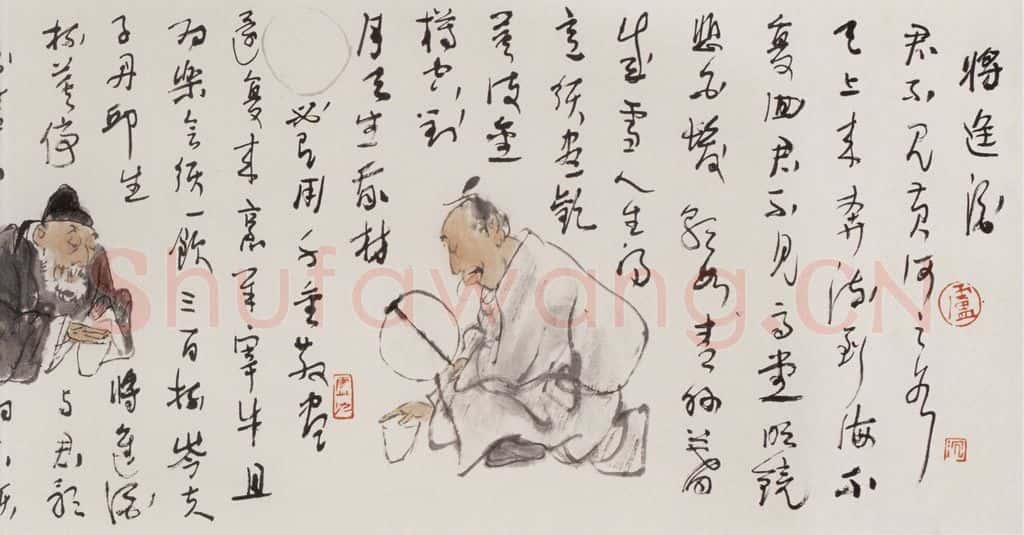 將進酒
君不見黃河之水
天上来奔流到海不
復回君不見高堂明鏡
悲白髮朝如青絲暮
成雪人生得
意須盡歡
莫使金
樽空對
月天生我材
必有用千金散盡
還復来烹羊宰牛且
為樂會須一飲三百杯岑夫
子丹邱生
將進酒
杯莫停
與君歌
Shufawang.CN